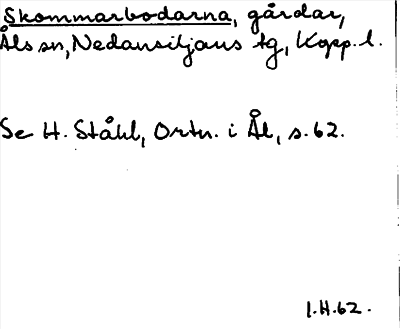 Skommarbodarna, gårdar,
Åls sn, Nedansiljans tg, Kopp. l.
Se H. Ståhl, Ortn. i Ål, s. 62.
I.H.62.